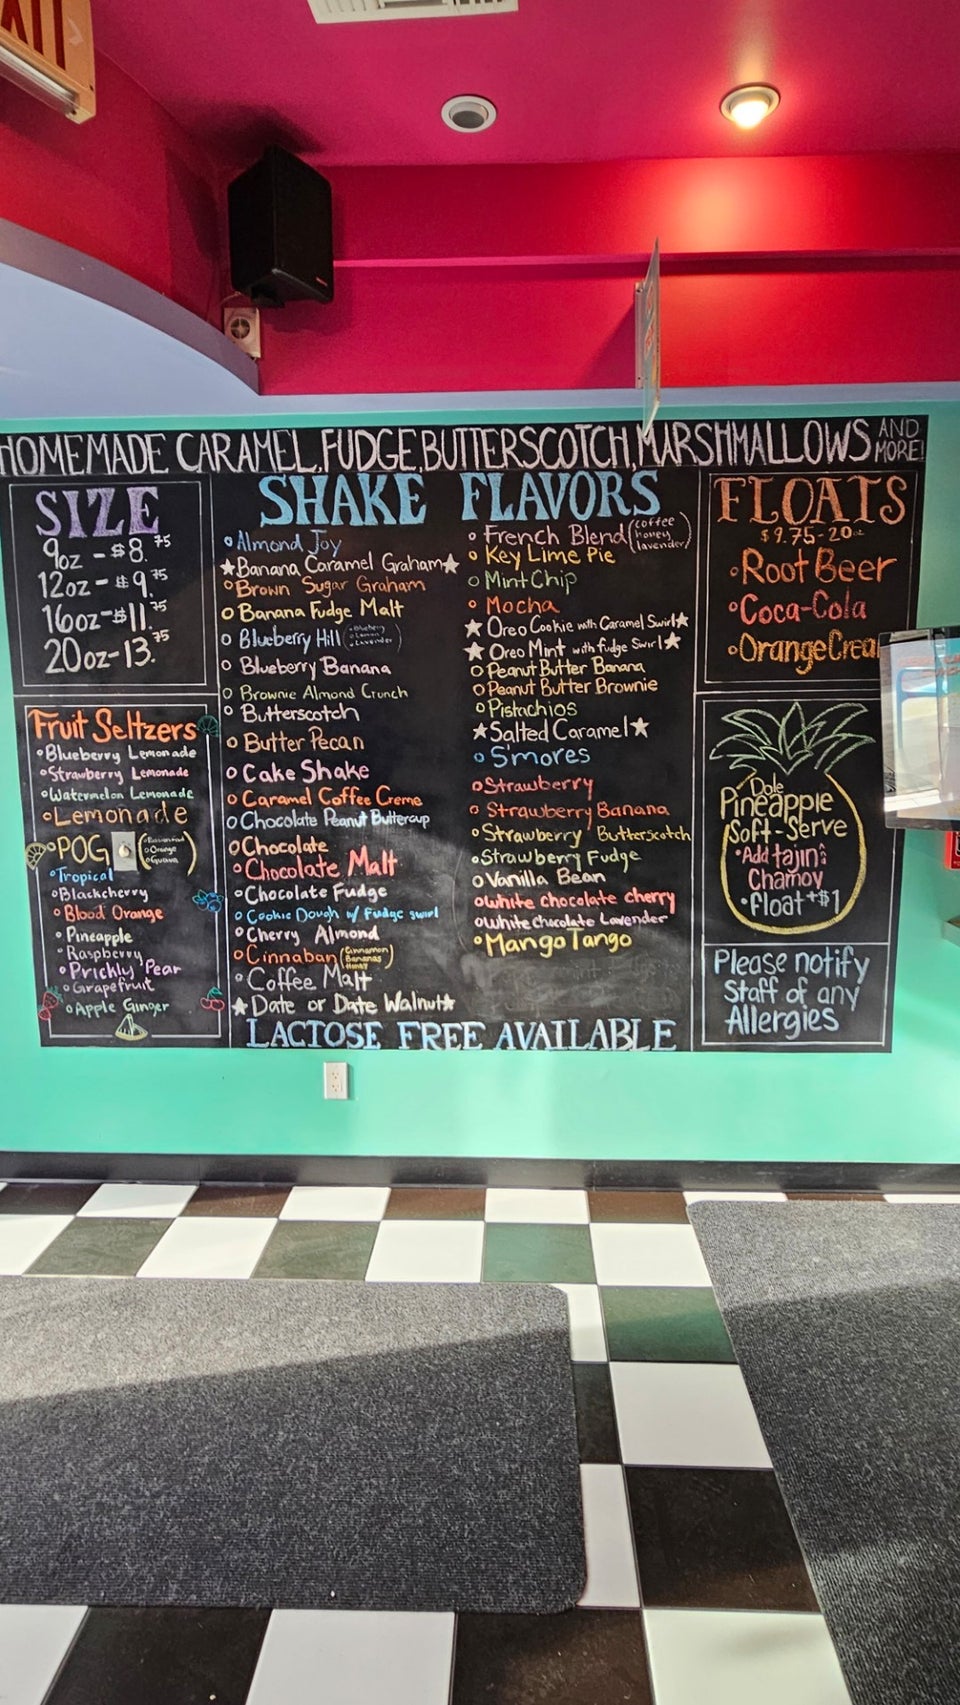 HOMEMADE CARAMEL, FUDGE, BUTTERSCOTCH, MARSHMALLOWS AND MORE!
SIZE
9oz - $8.75
12oz - $9.75
16oz - $11.75
20oz - 13.75
Fruit Seltzers
Blueberry Lemonade
Strawberry Lemonade
Watermelon Lemonade
Lemonade
POG (Passionfruit Orange Guava)
Tropical
Blackcherry
Blood Orange
Pineapple
Raspberry
Prickly Pear
Grapefruit
Apple Ginger
SHAKE FLAVORS
Almond Joy
Banana Caramel Graham
Brown Sugar Graham
Banana Fudge Malt
Blueberry Hill (Blueberry Lemon Lavender)
Blueberry Banana
Brownie Almond Crunch
Butterscotch
Butter Pecan
Cake Shake
Caramel Coffee Creme
Chocolate Peanut Buttercup
Chocolate
Chocolate Malt
Chocolate Fudge
Cookie Dough w/ fudge swirl
Cherry Almond
Cinnaban (Cinnamon Bananas Honey)
Coffee Malt
Date or Date Walnut
French Blend (coffee honey lavender)
Key Lime Pie
Mint Chip
Mocha
Oreo Cookie with Caramel Swirl
Oreo Mint with fudge Swirl
Peanut Butter Banana
Peanut Butter Brownie
Pistachios
Salted Caramel
S'mores
Strawberry
Strawberry Banana
Strawberry Butterscotch
Strawberry Fudge
Vanilla Bean
white chocolate cherry
white chocolate Lavender
Mango Tango
LACTOSE FREE AVAILABLE
FLOATS
$9.75-20oz
Root Beer
Coca-Cola
Orange
Dole
Pineapple
Soft-Serve
Add tajin &
Chamoy
float +$1
Please notify
Staff of any
Allergies